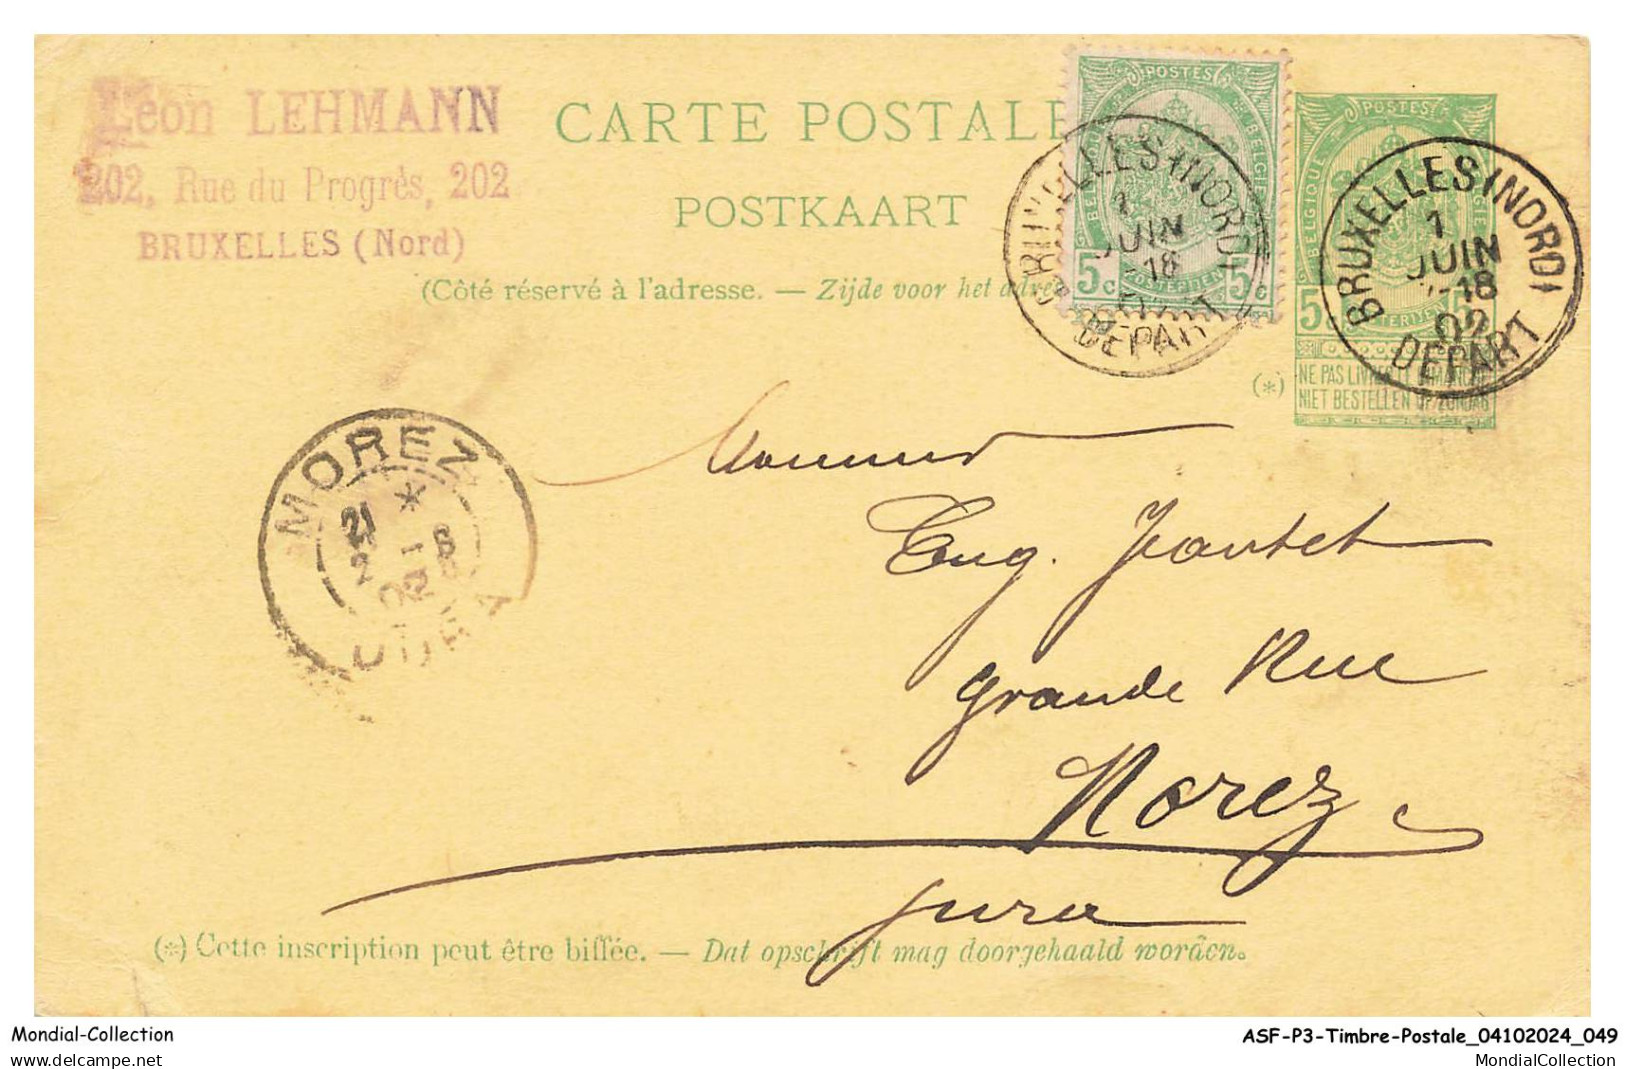 Léon LEHMANN
202, Rue du Progrès, 202
BRUXELLES (Nord)
CARTE POSTALE
POSTKAART
(Côté réservé à l'adresse. — Zijde voor het
POSTES
BELGIQUE BELGIE
5c 5c
POSTERIJEN
BRUXELLES (NORD)
1
JUIN
-18
DEPART
POSTES
BELGIQUE
5
BRUXELLES (NORD)
1
JUIN
-18
02
DEPART
(*)
NE PAS LIVRER LE DIMANCHE
NIET BESTELLEN OP ZONDAG
MOREZ
21 *
2 -6
02
JURA
Monsieur
Eug. Jeantet
Grande Rue
Morez
Jura
(*) Cette inscription peut être biffée. — Dat opschrift mag doorgehaald worden.
Mondial-Collection
delcampe.net
ASF-P3-Timbre-Postale_04102024_049
MondialCollection